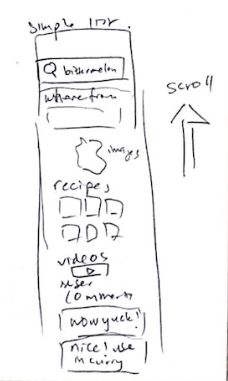 Simple list.
Q bittermelon
where from
images
scroll
recipes
videos
user
comments
wow yuck!
nice! use
in curry